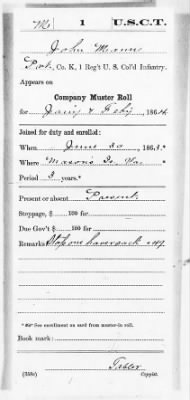 M. 1 U.S.C.T.
John Mann
Pvt., Co. K, 1 Reg't U. S. Col'd Infantry.
Appears on
Company Muster Roll
for Jan'y & Feb'y, 1864
Joined for duty and enrolled:
When June 30, 1863.*
Where "Mason's Is. Va.
Period 3 years.*
Present or absent Present
Stoppage, $ 100 for
Due Gov't $ 100 for
Remarks: Stop one haversack
*See enrollment on card from muster-in roll.
Book mark:
Copyist.